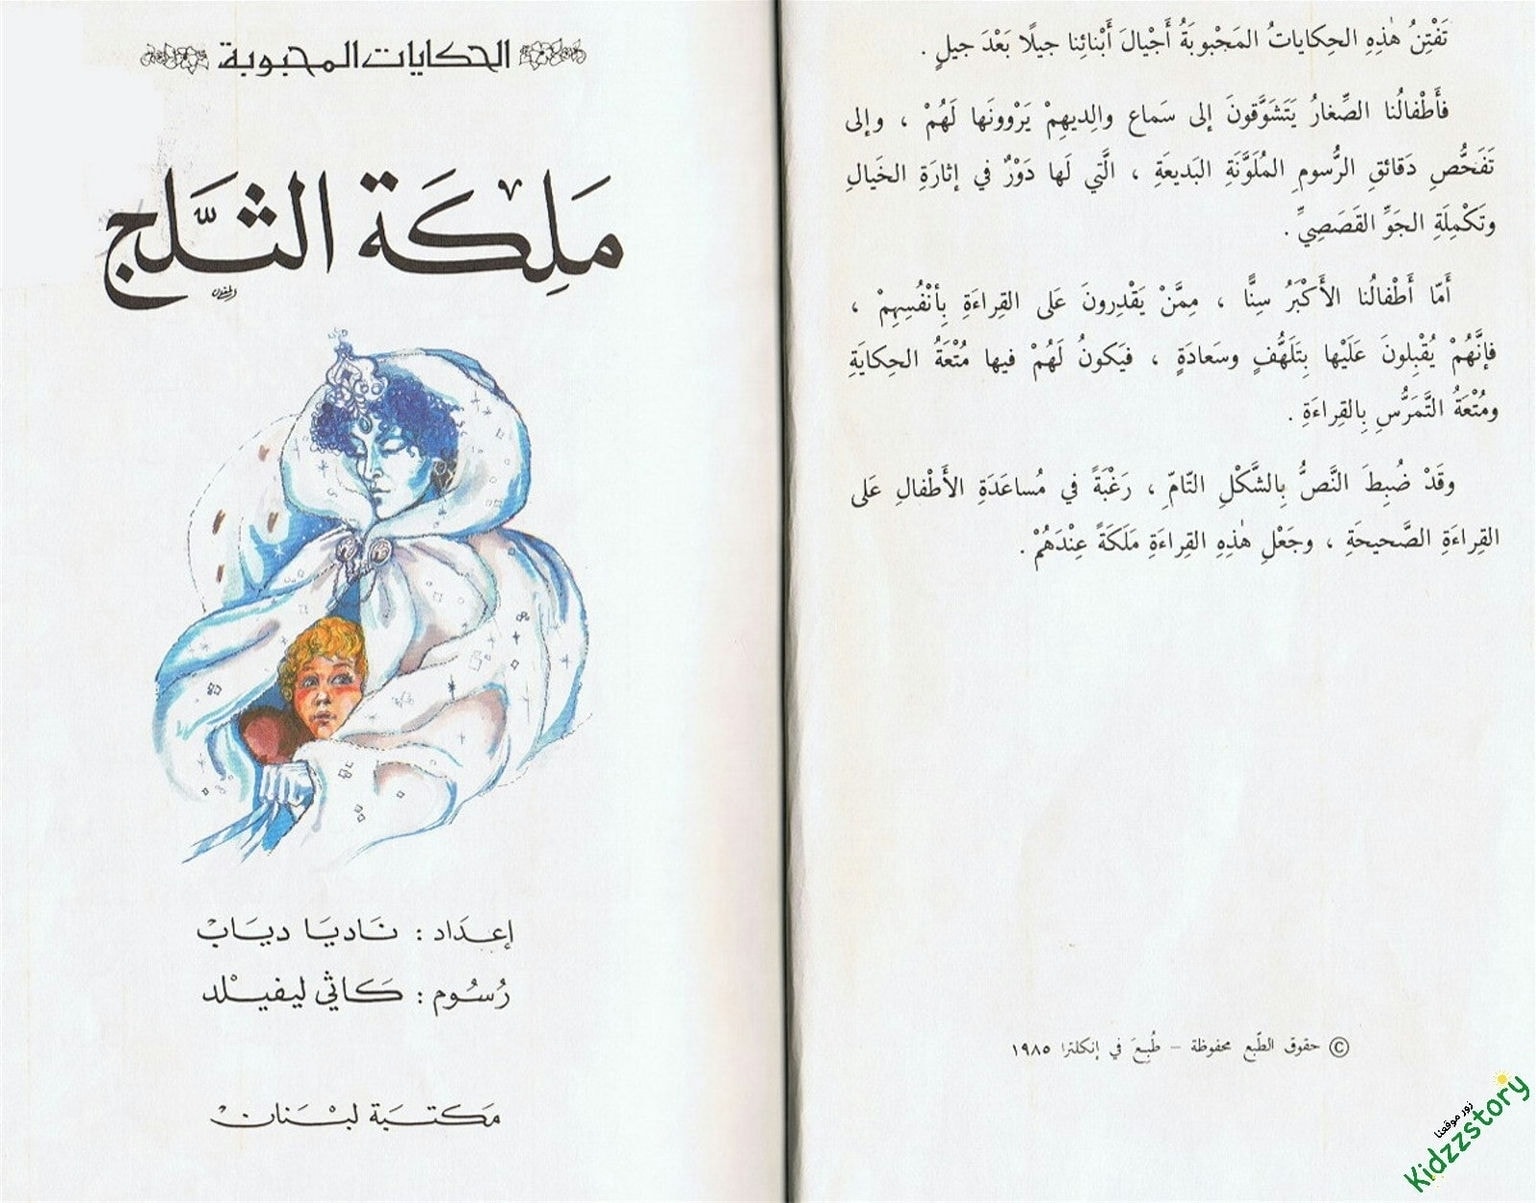 تَفْتِنُ هٰذِهِ الحِكاياتُ المَحْبوبَةُ أَجْيالَ أَبْنائِنا جيلًا بَعْدَ جيلٍ .
فأَطْفالُنا الصِّغارُ يَتَشَوَّقونَ إلى سَماع والِديهِمْ يَرْوونَها لَهُمْ ، وإلى
تَفَحُّصِ دَقائقِ الرُّسومِ المُلَوَّنَةِ البَديعَةِ ، الَّتي لَها دَوْرٌ في إثارَةِ الخَيالِ
وتَكْمِلَةِ الجَوِّ القَصَصِيِّ .
أَمّا أَطْفالُنا الأَكْبَرُ سِنًّا ، مِمَّنْ يَقْدِرونَ عَلى القِراءَةِ بِأنْفُسِهِمْ ،
فإنَّهُمْ يُقْبِلونَ عَلَيْها بِتَلَهُّفٍ وسَعادَةٍ ، فيَكونُ لَهُمْ فيها مُتْعَةُ الحِكايَةِ
ومُتْعَةُ التَّمَرُّسِ بِالقِراءَةِ .
وقَدْ ضُبِطَ النَّصُّ بِالشَّكْلِ التّامِّ ، رَغْبَةً في مُساعَدَةِ الأَطْفالِ عَلى
القِراءَةِ الصَّحيحَةِ ، وجَعْلِ هٰذِهِ القِراءَةِ مَلَكَةً عِنْدَهُمْ .
© حقوق الطّبع محفوظة – طُبِعَ في إنكلترا ١٩٨٥
زور موقعنا
Kidzzstory
الحكايات المحبوبة
مَلِكَة الثَّلج
إعـدَاد : نَـاديَـا ديَـاب
رُسُـوم : كَـاثي ليـفيـلْد
مَـكتـبَة لبْـنَـان